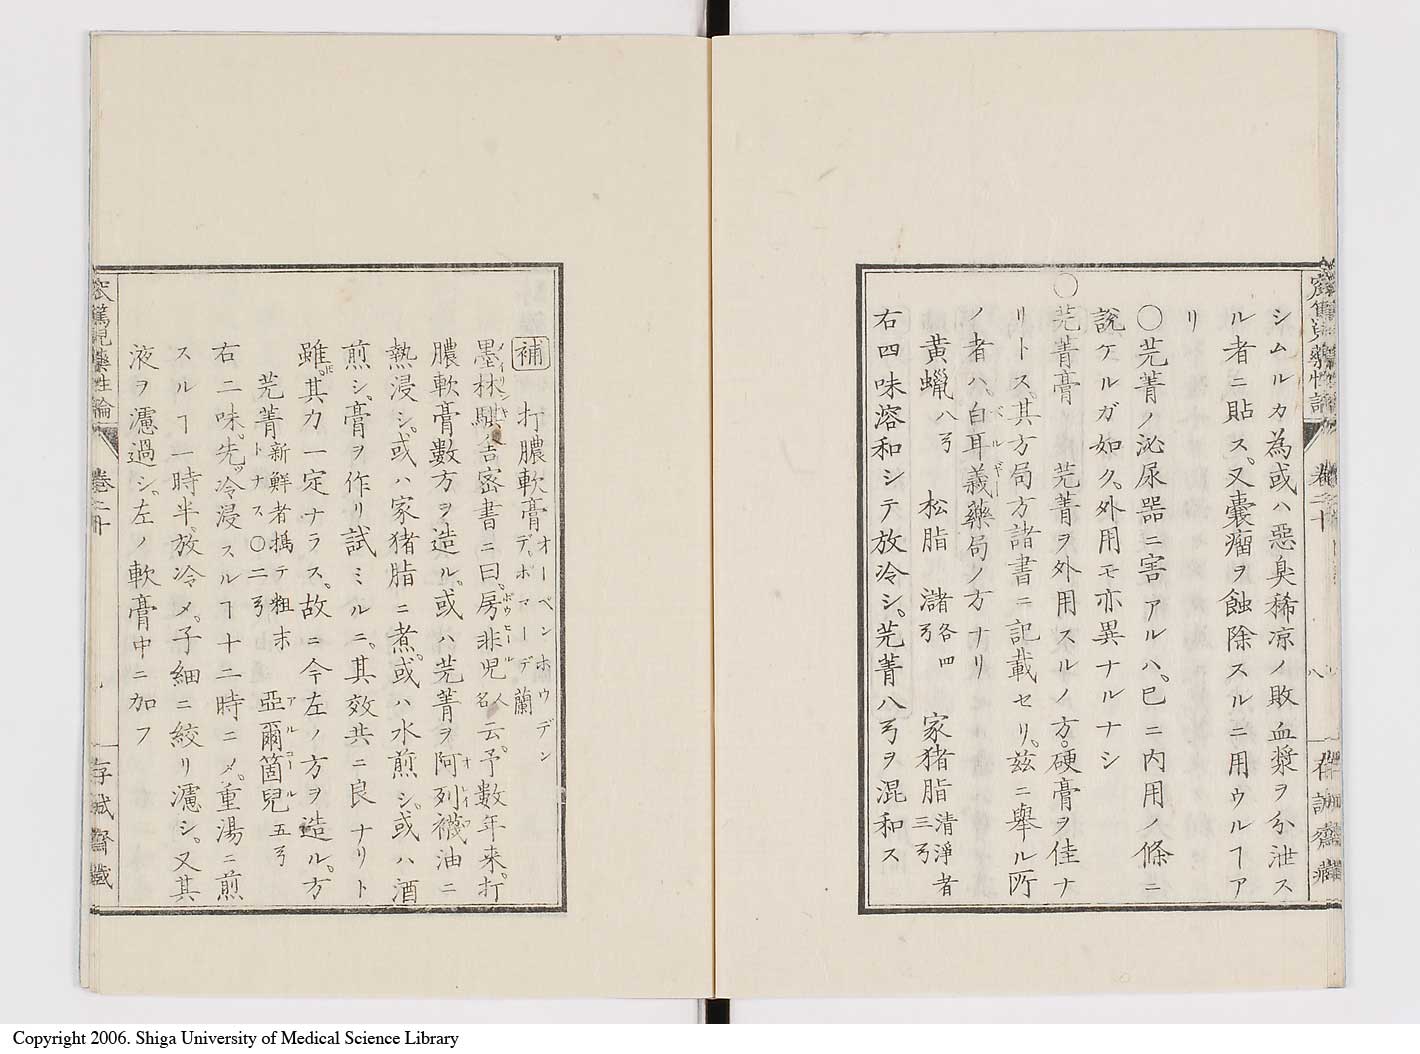 シムルカ為或ハ惡臭稀凉ノ敗血漿ヲ分泄ス
ル者ニ貼ス。又嚢瘤ヲ蝕除スルニ用ウルヿア
リ
〇芫菁ノ泌尿器ニ害アルハ。已ニ内用ノ條ニ
説ケルガ如ク。外用モ亦異ナルナシ
〇芫菁膏 芫菁ヲ外用スルノ方。硬膏ヲ佳ナ
リトス。其方局方諸書ニ記載セリ。茲ニ擧ル所
ノ者ハ。白耳義藥局ノ方ナリ
ベルギー
黄蠟八弓 松脂 瀦各四弓 家猪脂清淨者三弓
右四味溶和シテ放冷シ。芫菁八弓ヲ混和ス
卷二十
八
補 打膿軟膏オーベンホウデンデ、ポマーデ蘭
墨林騏吉密書ニ曰。房非児人名云。予数年来。打
ボウヒール
膿軟膏数方ヲ造ル。或ハ芫菁ヲ阿列襪油ニ
オレイフ
熱浸シ。或ハ家猪脂ニ煮。或ハ水煎シ。或ハ酒
煎シ。膏ヲ作リ試ミルニ。其效共ニ良ナリト
雖𪜈。其力一定ナラス。故ニ今左ノ方ヲ造ル。方
芫菁新鮮者搗テ粗末トナス〇二弓 亞爾箇兒五弓
アルコール
右二味。先ツ冷浸スルヿ十二時ニメ。重湯ニ煎
スルヿ一時半。放冷メ。子細ニ絞リ濾シ。又其
液ヲ濾過シ。左ノ軟膏中ニ加フ
窊篤児藥性論
卷二十
九
存誠齋藏
Copyright 2006. Shiga University of Medical Science Library